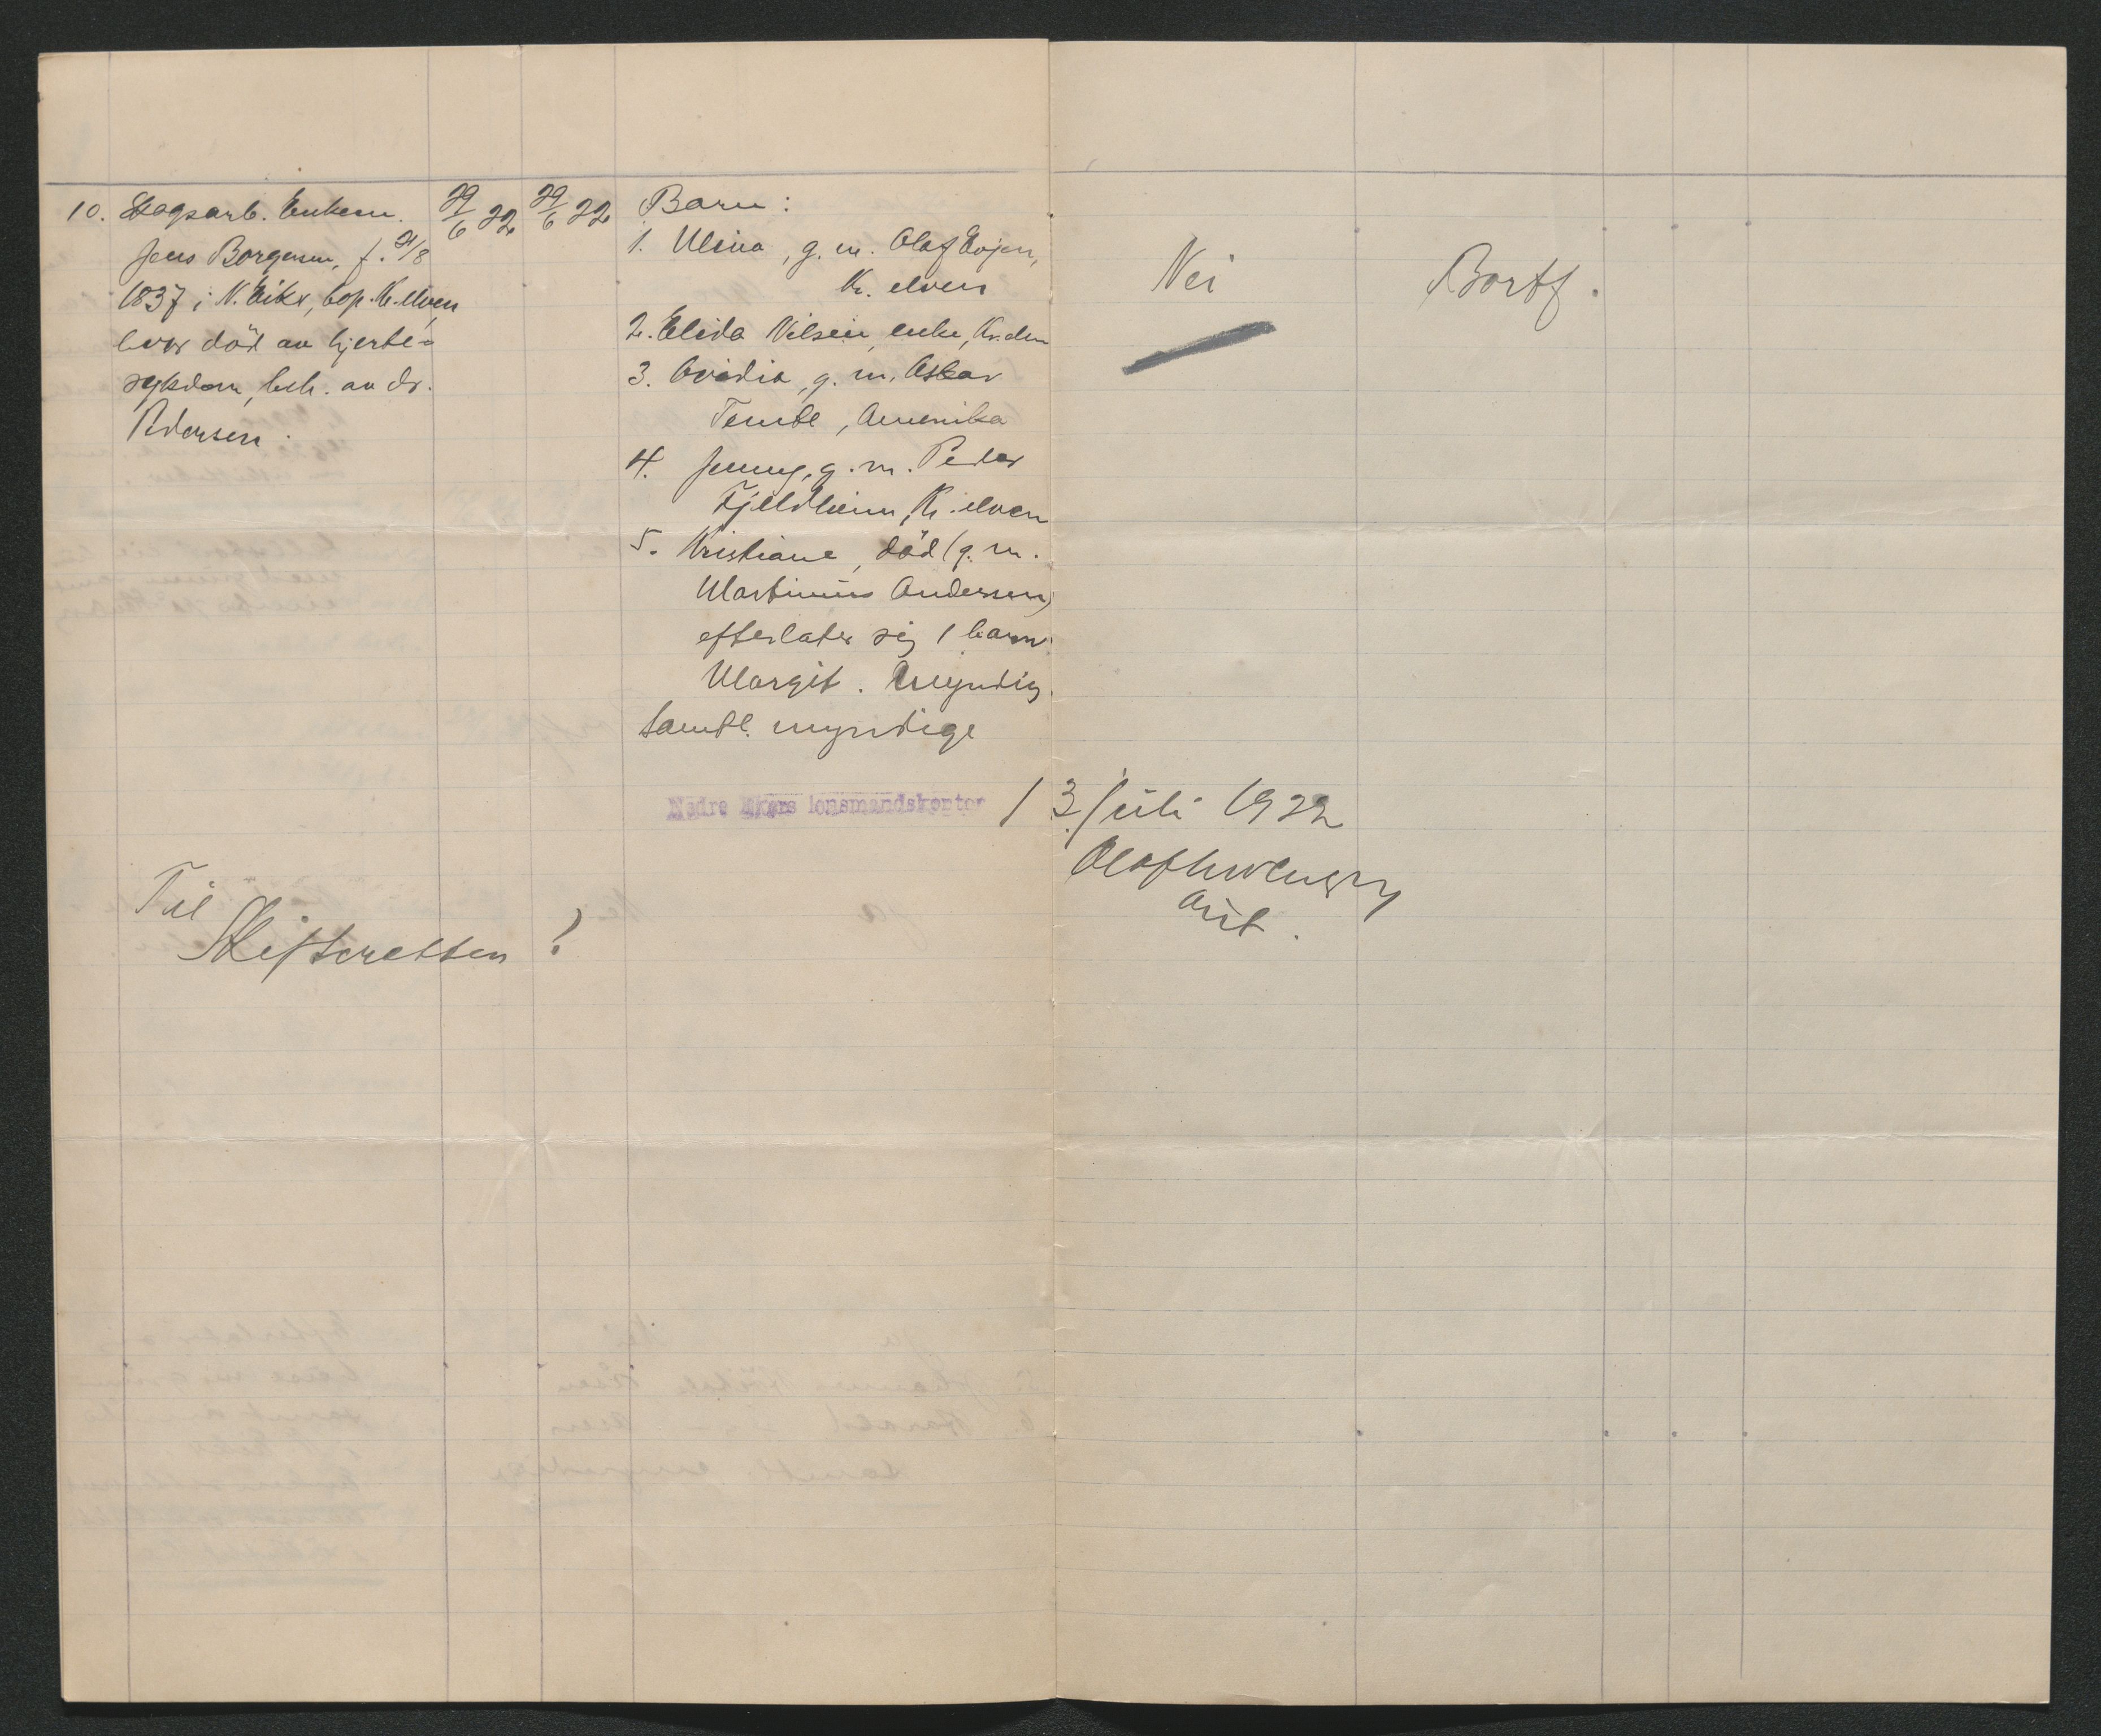 10. Dagsarb. Enkem.
Jens Borgersen, f. 21/8
1837 i N. Eiker, bop. Kr.elven,
hvor död av hjerte-
sykdom, beh. av dr.
Pedersen.
29/6 22
29/6 22
Barn:
1. Mina, g. m. Olaf Evjen,
Kr. elven
2. Elida Nilsen, enke, Kr. elven
3. Ovidia, g. m. Oskar
Temte, Amerika
4. Jenny, g. m. Peder
Fjeldheim, Kr. elven
5. Kristiane, död (g. m.
Martinius Andersen)
efterlater sig 1 barn:
Margit. Myndig.
Samtl. myndige
Nei
Bortf.
Nedre Ekers lensmandskontor 13 juli 1922
Olaf
aut.
Til
Skifteretten!